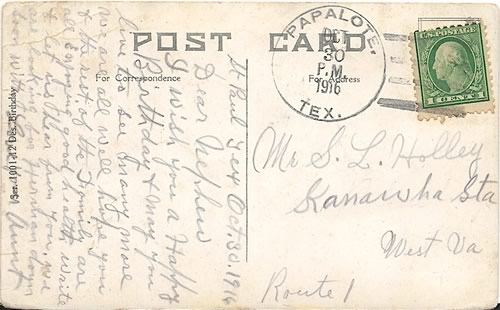 POST CARD
For Correspondence
For Address
PAPALOTE,
OCT
30
P.M.
1916
TEX.
U.S. POSTAGE
1 CENT 1
Mr S. L. Holley
Kanawha Sta
West Va
Route 1
St Paul Tex Oct. 30. 1916
Dear Nephew
I wish you a Happy
Birthday & may you
live to see many more
we are all well hope you
& the rest of the Family are
all Enjoying good health write
& let us hear from you. we
are looking for Herman down
soon with
Aunt
Ser. 1001-12 Des. Birthday